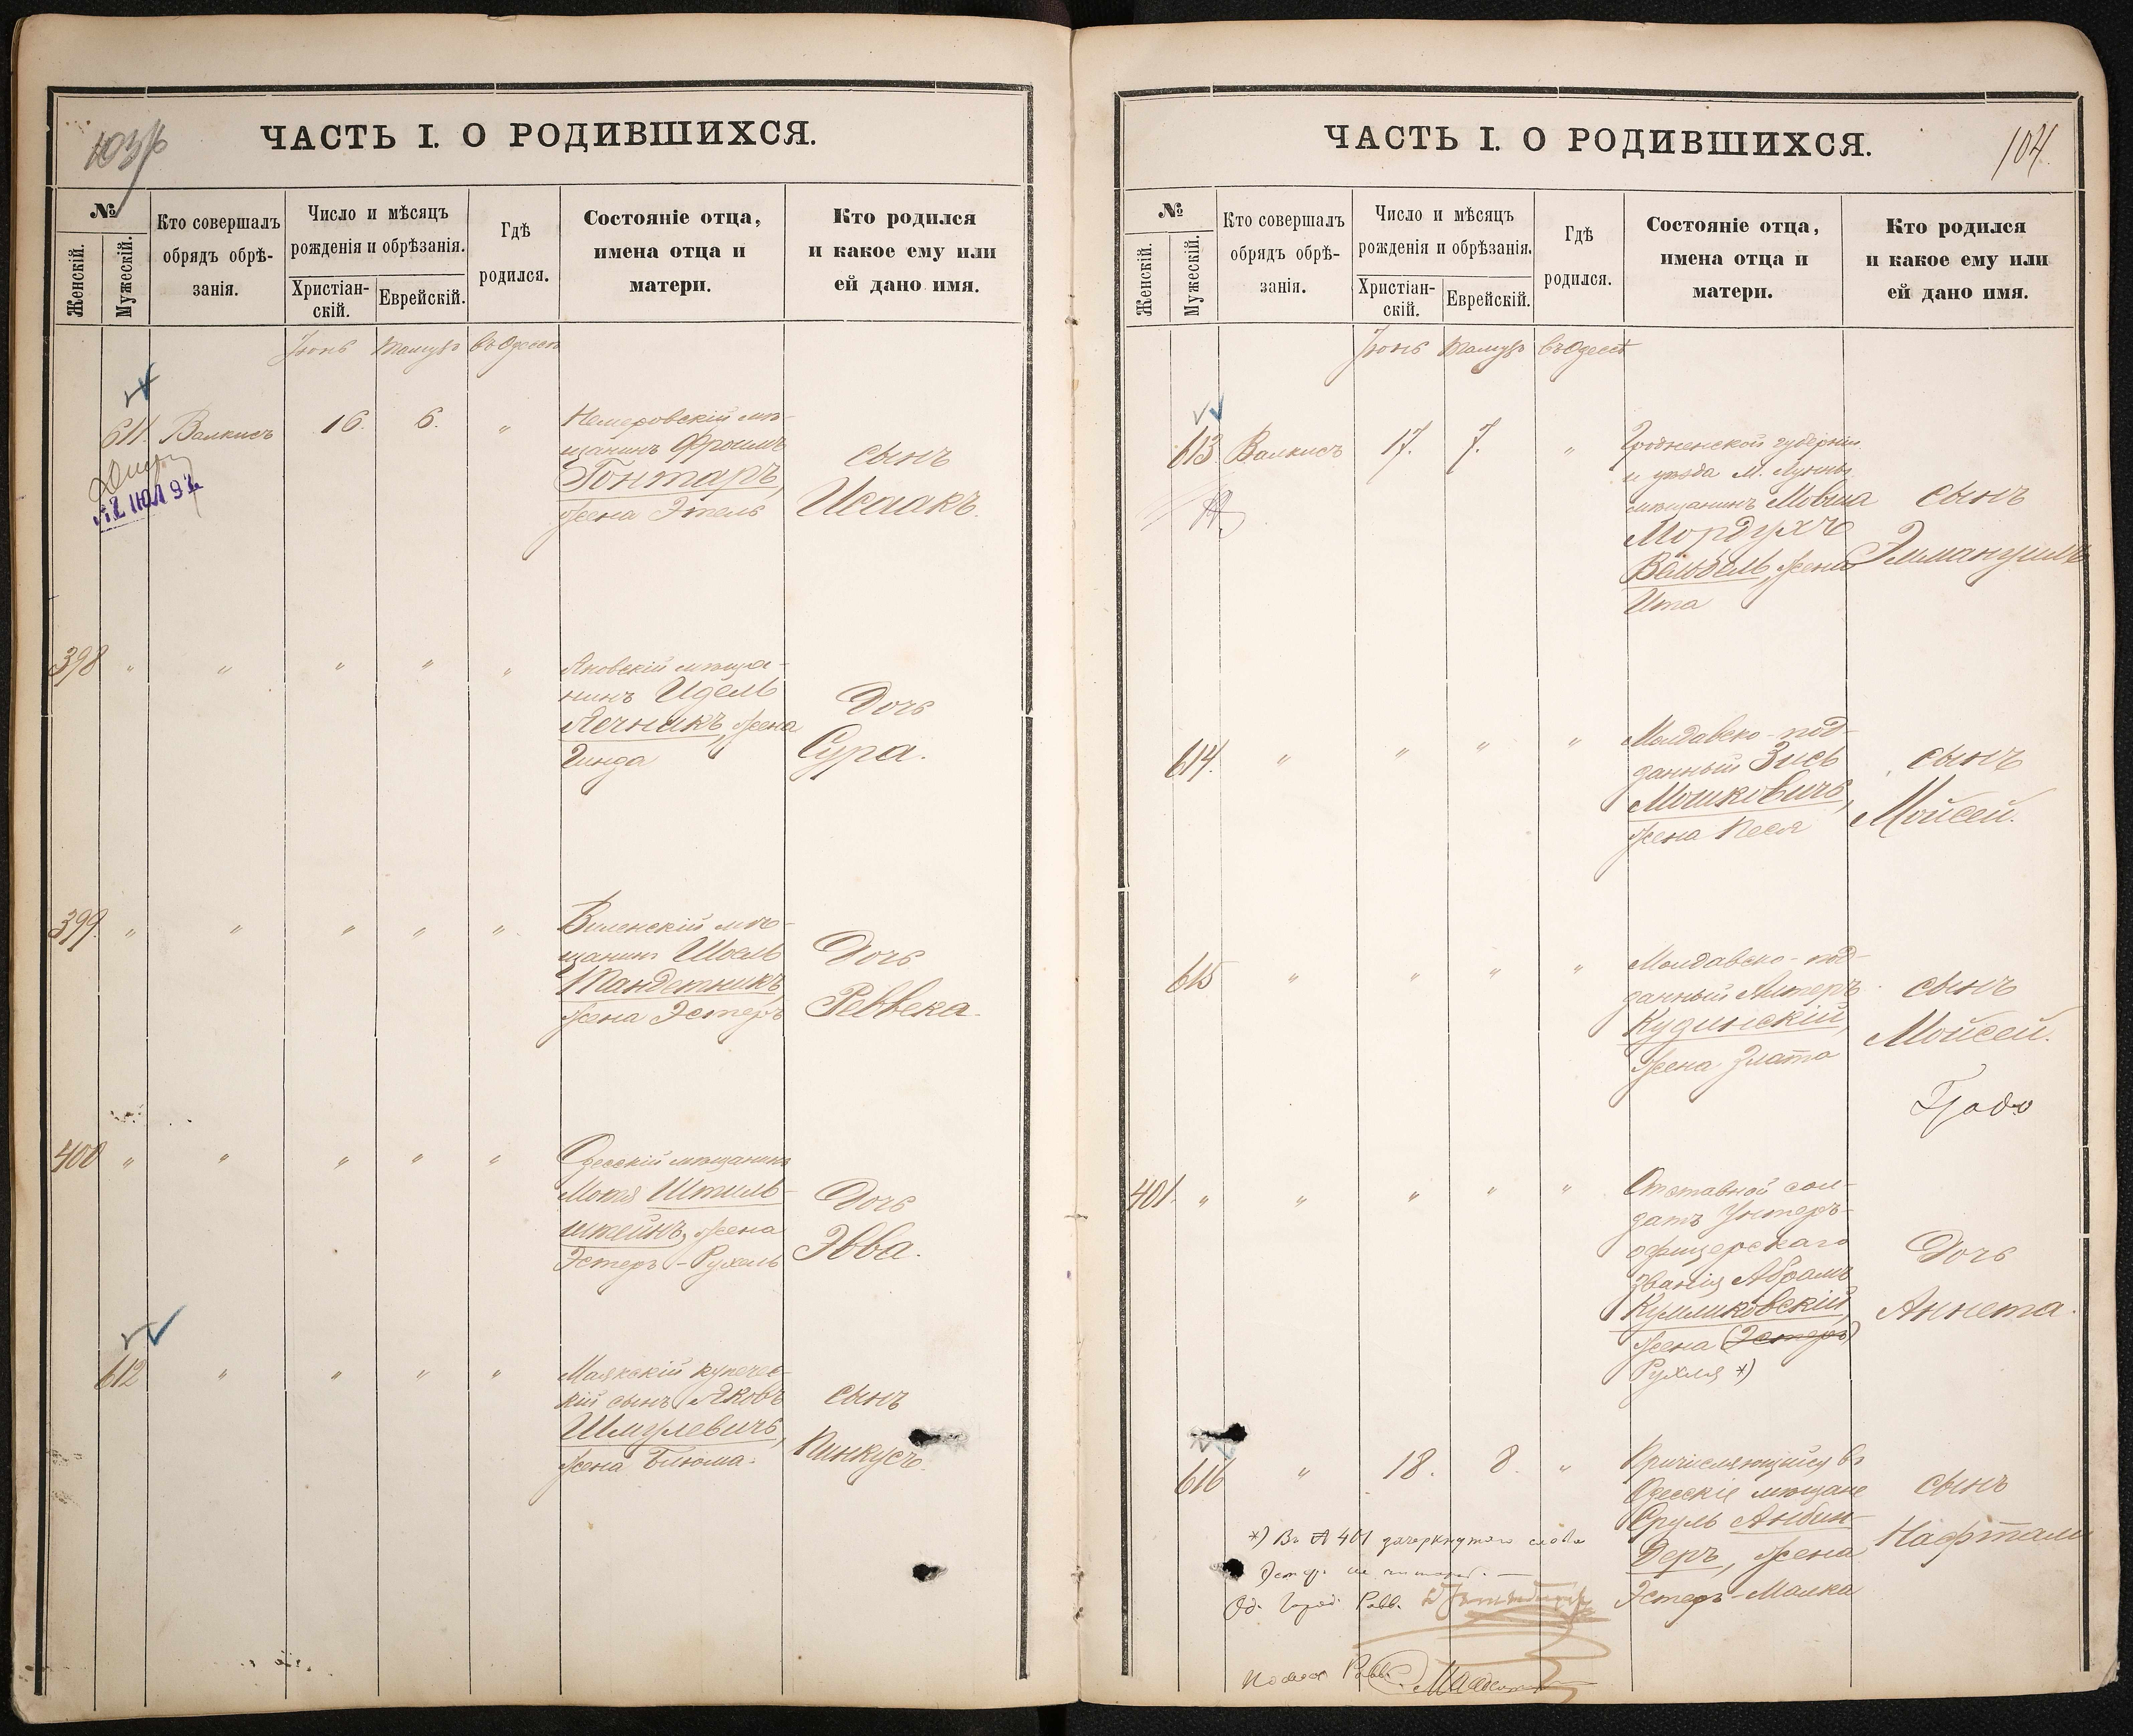 ЧАСТЬ I. О РОДИВШИХСЯ.
№
Женскій.
Мужескій.
Кто совершалъ
обрядъ обрѣ-
занія.
Число и мѣсяцъ
рожденія и обрѣзанія.
Христіан-
скій.
Еврейскій.
Гдѣ
родился.
Состояніе отца,
имена отца и
матери.
Кто родился
и какое ему или
ей дано имя.
Іюнь Тамузъ въ Одессѣ
611. Валкисъ 16. 6. „
12 ІЮЛ 92
Немеровскій мѣ-
щанинъ Фроимъ
Гонтаръ,
жена Этель
сынъ
Исаакъ.
398 „ „ „ „ „
мѣща-
нинъ Идель
Лечникъ, жена
Гинда
Дочь
Сура.
399. „ „ „ „ „
Виленскій мѣ-
щанинъ Шоель
Тандетникъ,
жена Эстеръ
Дочь
Реввека.
400 „ „ „ „ „
Одесскій мѣщанинъ
Мотя Штиль-
штейнъ, жена
Эстеръ-Рухель
Дочь
Эвва.
612 „ „ „ „
Маякскій купечес-
кій сынъ Яковъ
Шмулевичъ,
жена Блюма.
сынъ
Пинкусъ.
ЧАСТЬ I. О РОДИВШИХСЯ.
104.
№
Женскій.
Мужескій.
Кто совершалъ
обрядъ обрѣ-
занія.
Число и мѣсяцъ
рожденія и обрѣзанія.
Христіан-
скій.
Еврейскій.
Гдѣ
родился.
Состояніе отца,
имена отца и
матери.
Кто родился
и какое ему или
ей дано имя.
Іюнь Тамузъ въ Одессѣ
613. Валкисъ 17. 7. „
Гродненской губерніи
и уѣзда М. Лунны
мѣщанинъ Мовша
Мордухъ
Вельбель, жена
Ита
сынъ
Эммануилъ
614. „ „ „ „
Молдавско-под-
данный Зись
Мошковичъ,
жена Песя
сынъ
Мойсей.
615 „ „ „ „
Молдавско-под-
данный Алтеръ
Кудинскій,
жена Злата
сынъ
Мойсей.
401. „ „ „ „ „
Отставной сол-
датъ Унтеръ-
офицерскаго
званія Абрамъ
Кумликовскій,
жена (Эстеръ)
Рухля *)
Дочь
Аннета.
616 „ 18. 8. „
Причисляющійся въ
Одесскіе мѣщане
Сруль Анбин-
деръ, жена
Эстеръ-Малка
сынъ
Нафтали
*) Въ № 401 зачеркнутого слова
Эстеръ не читать. —
Од. Город. Равв.